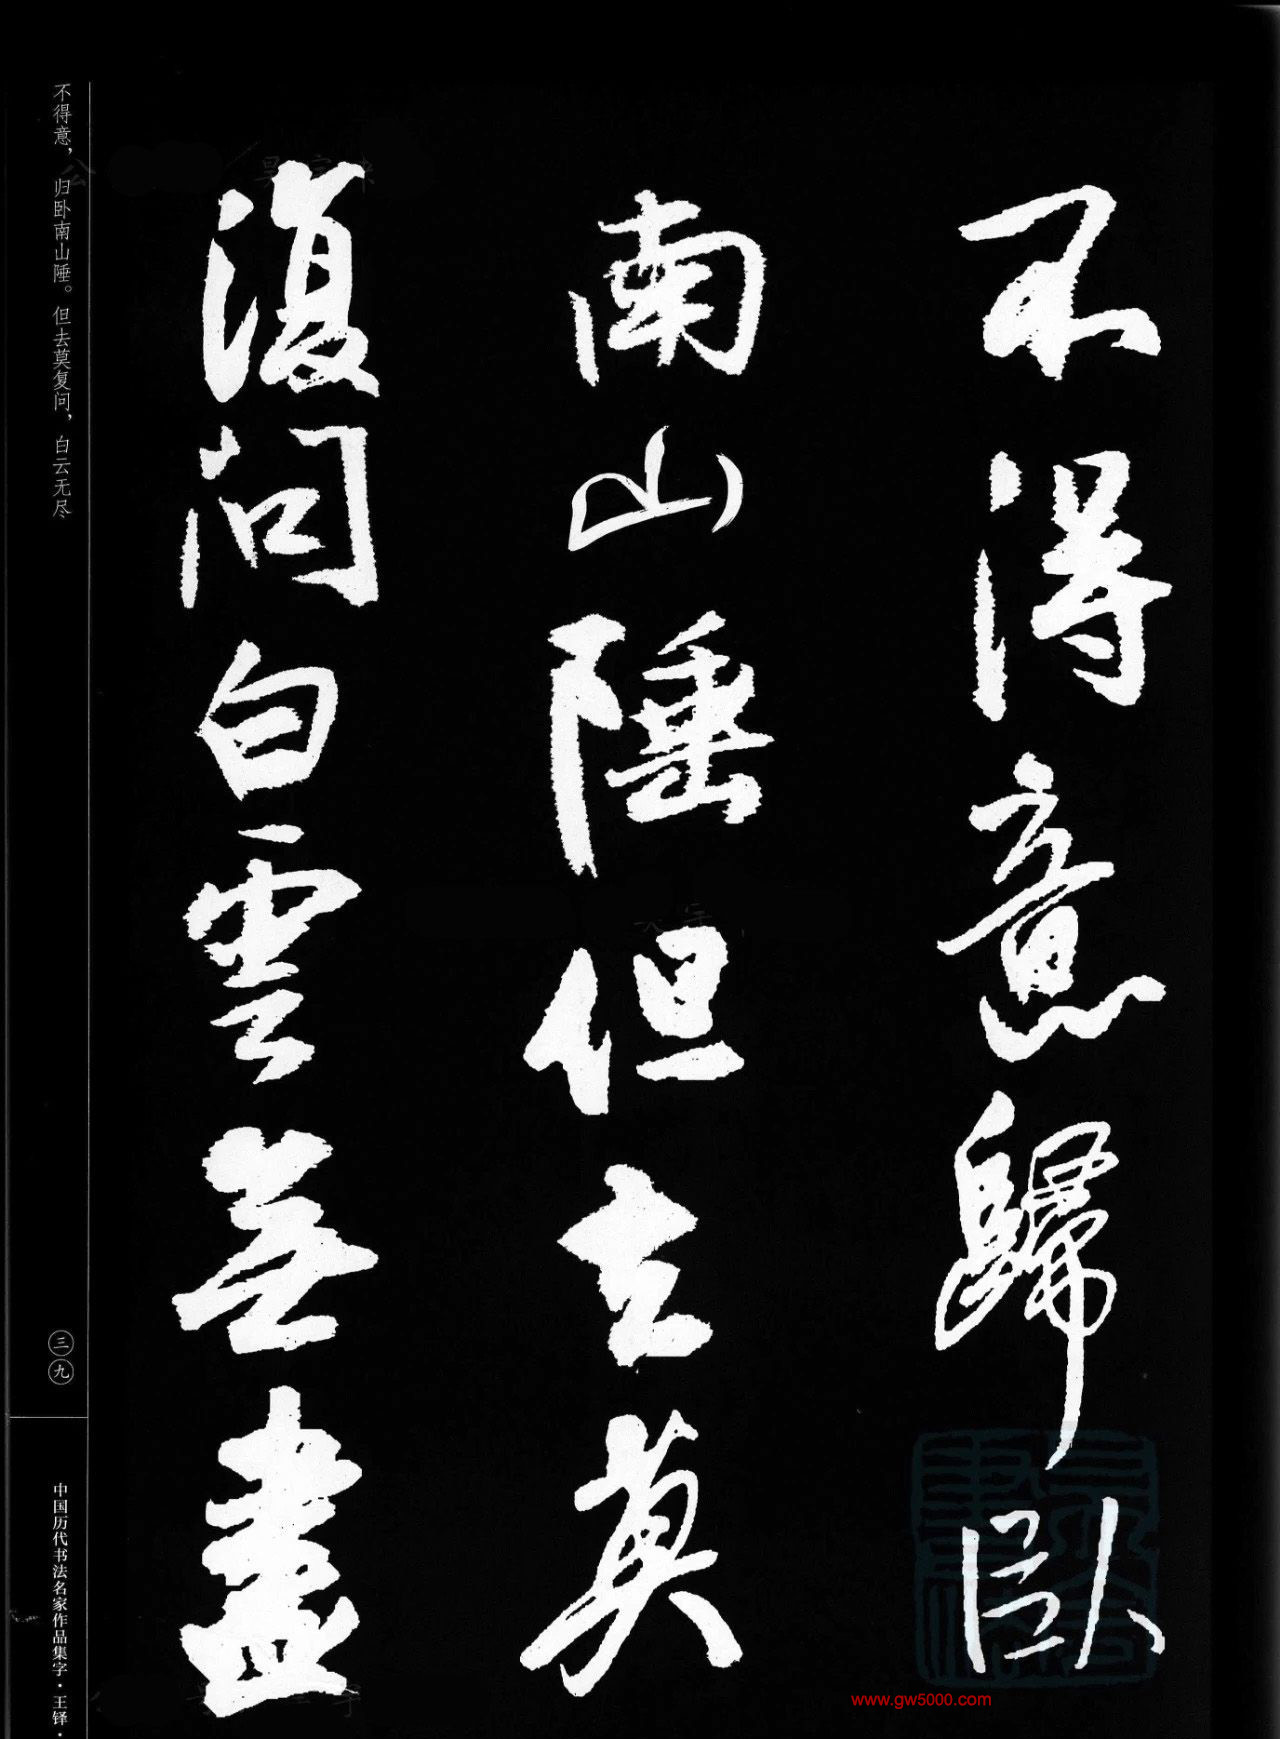 不得意歸卧
南山陲但去莫
復問白雲無盡
不得意，归卧南山陲。但去莫复问，白云无尽
三九
中国历代书法名家作品集字·王铎·
www.gw5000.com